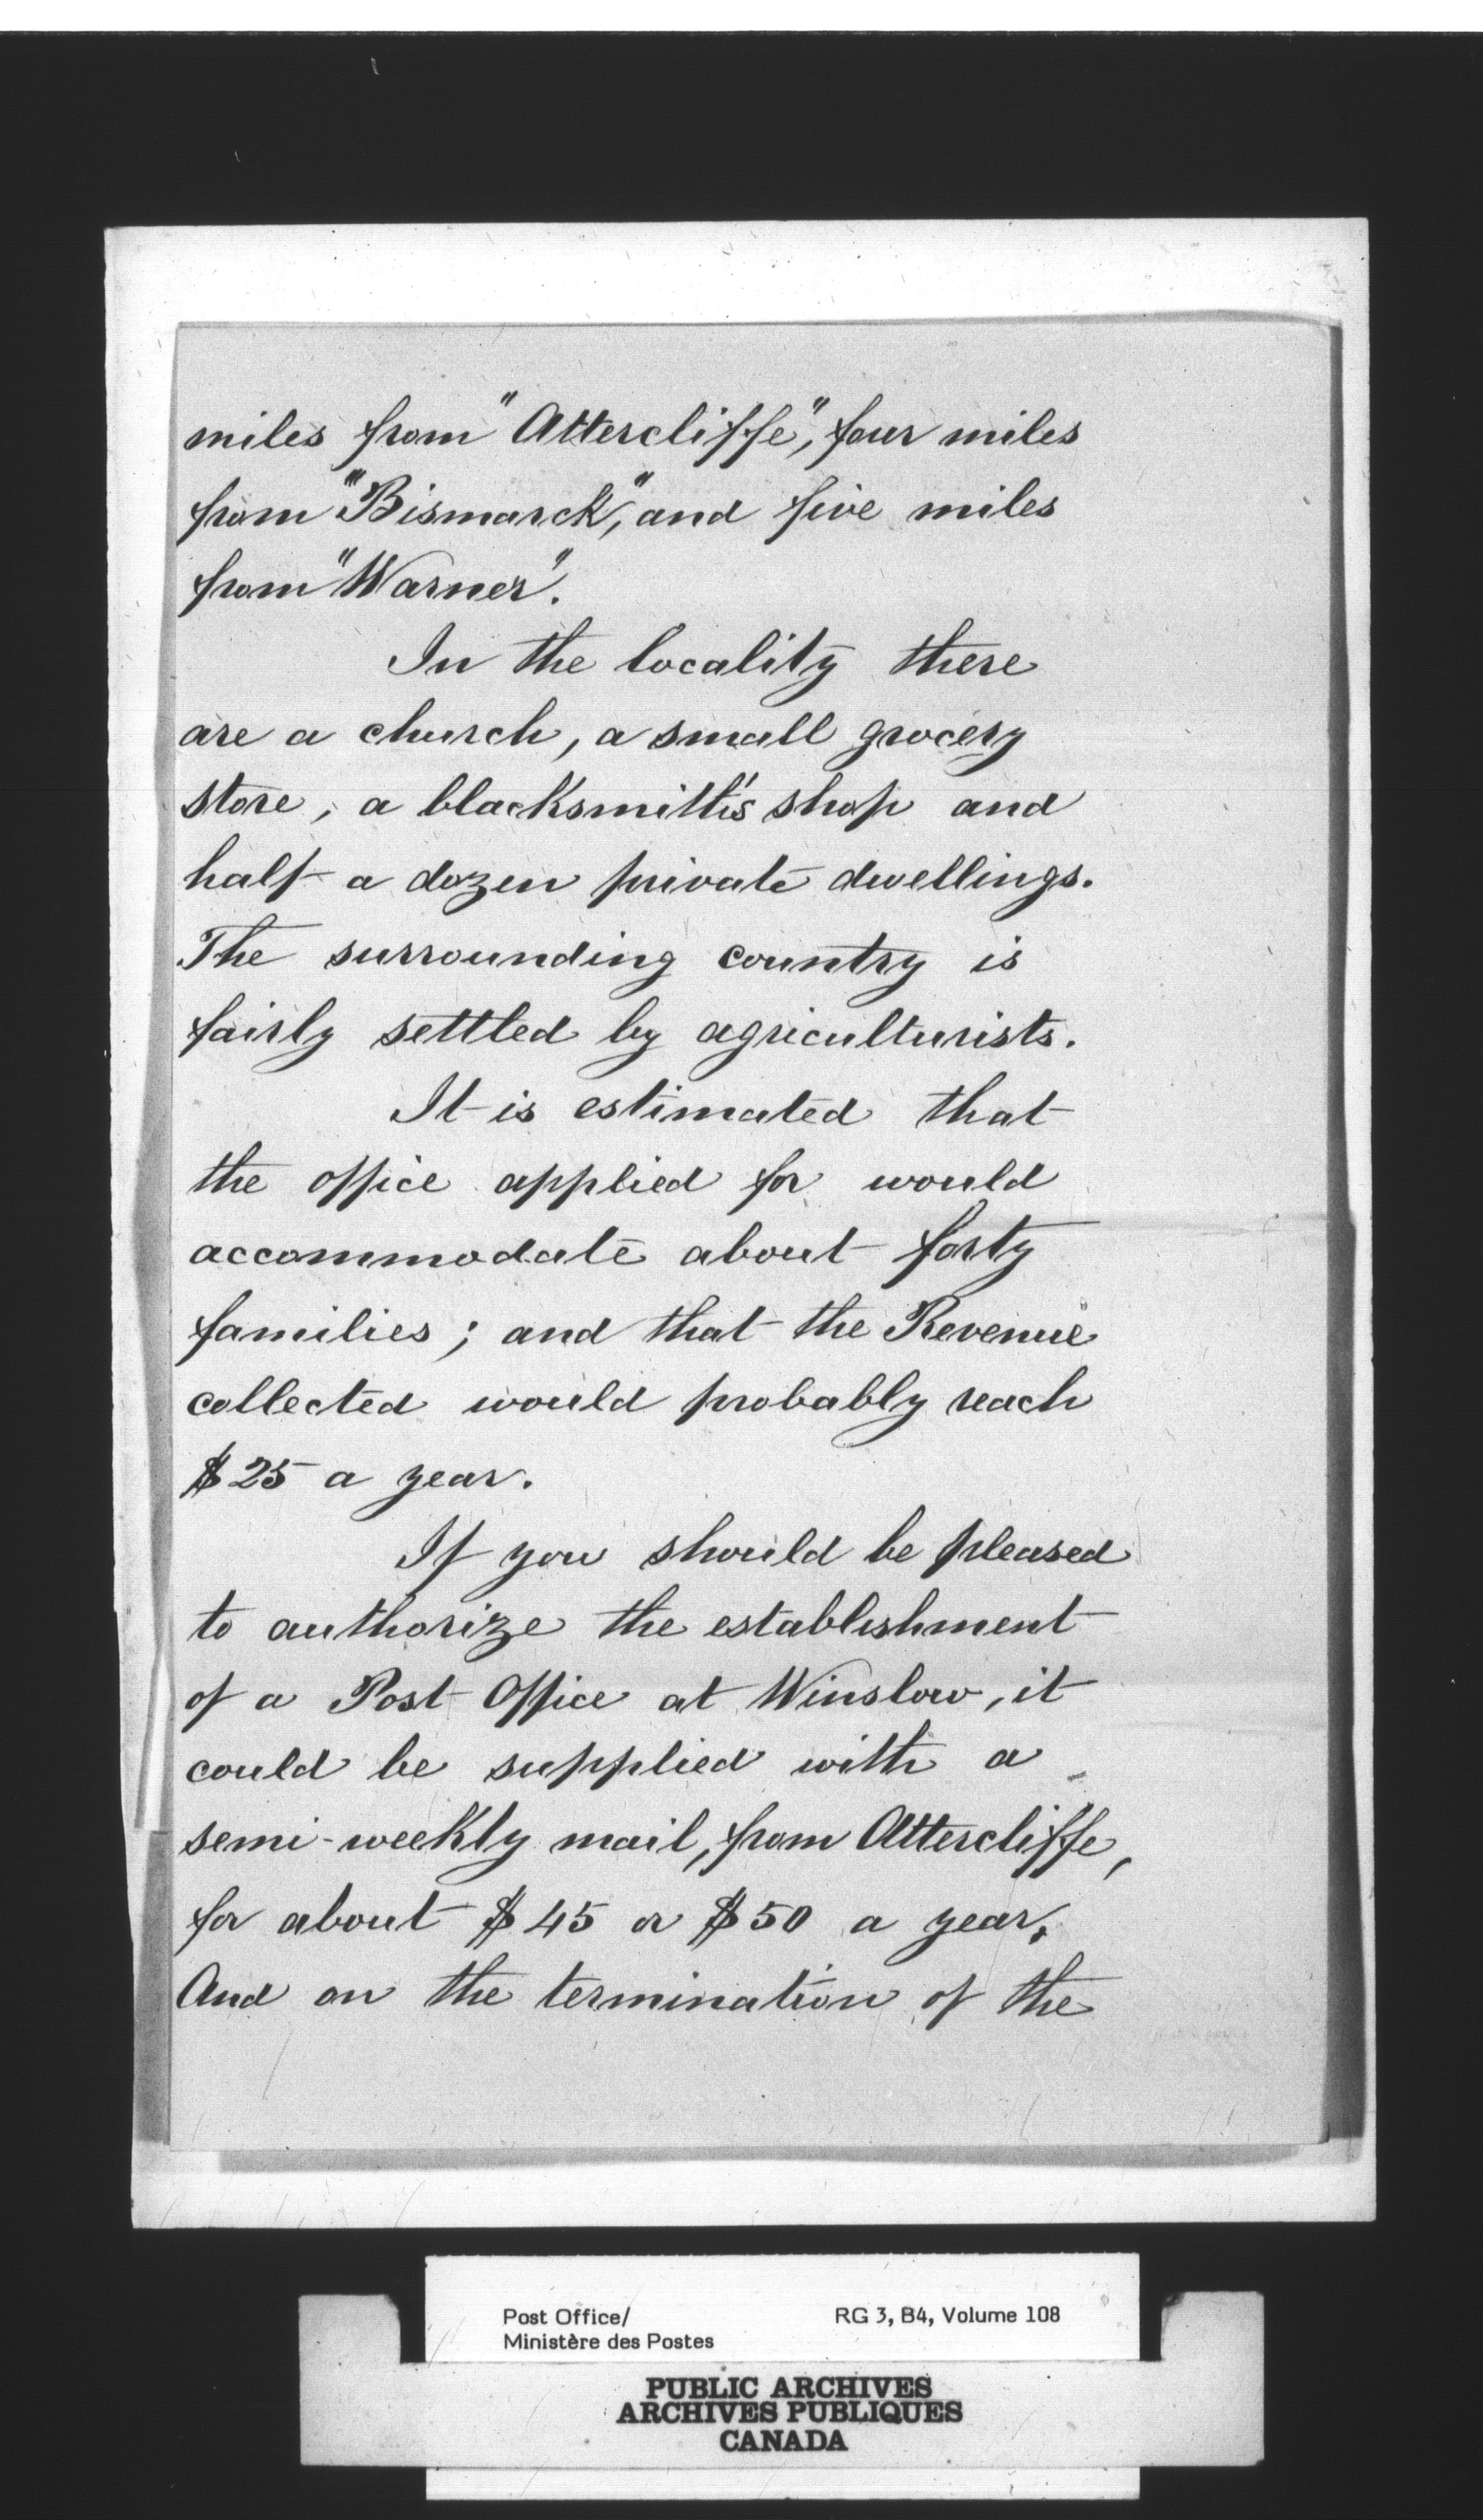 miles from "Attercliffe", four miles
from "Bismarck", and five miles
from "Warner".
In the locality there
are a church, a small grocery
store, a blacksmith's shop and
half a dozen private dwellings.
The surrounding country is
fairly settled by agriculturists.
It is estimated that
the office applied for would
accommodate about forty
families; and that the Revenue
collected would probably reach
$25 a year.
If you should be pleased
to authorize the establishment
of a Post Office at Winslow, it
could be supplied with a
semi-weekly mail, from Attercliffe,
for about $45 or $50 a year.
And on the termination of the
Post Office/ RG 3, B4, Volume 108
Ministère des Postes
PUBLIC ARCHIVES
ARCHIVES PUBLIQUES
CANADA